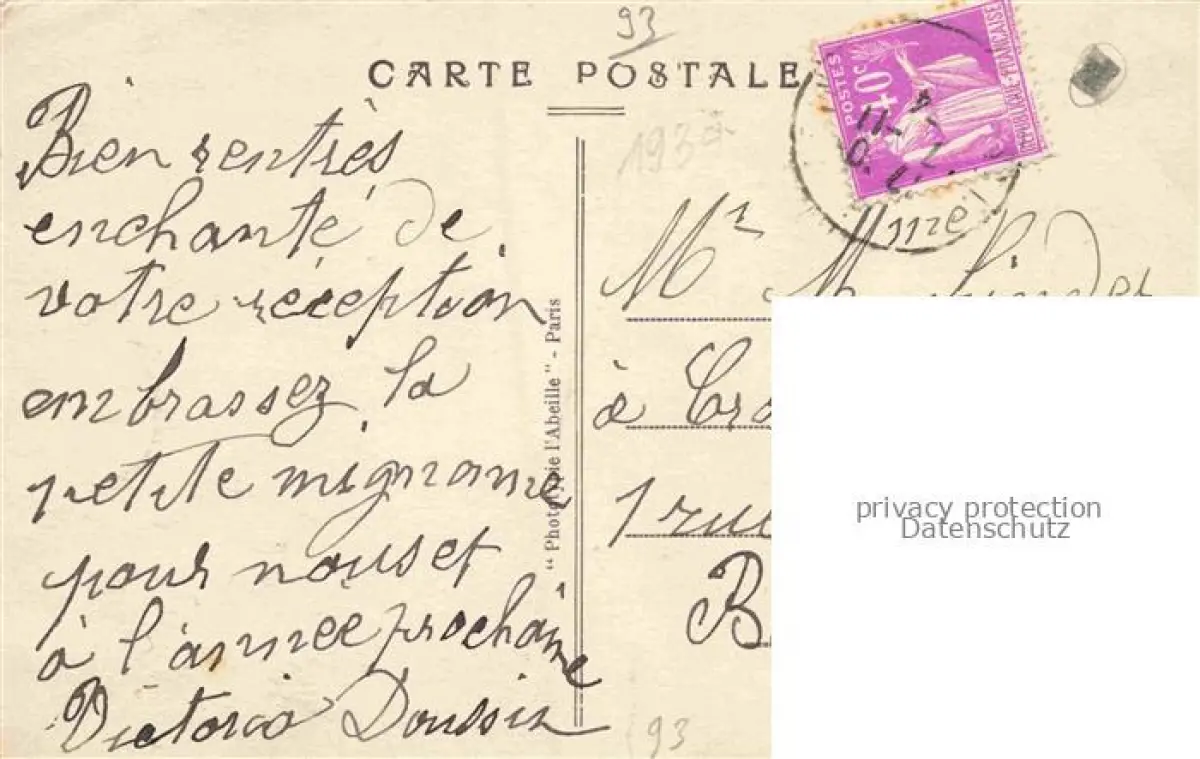 93
CARTE POSTALE
POSTES
40c
REPUBLIQUE-FRANÇAISE
Bien rentrés
enchanté de
votre réception
embrassez la
petite mignonne
pour nous et
à l'année prochaine
Victoria Doussin
"Phototypie l'Abeille" - Paris
193
Mr M.
à
1 rue
B
privacy protection
Datenschutz
93